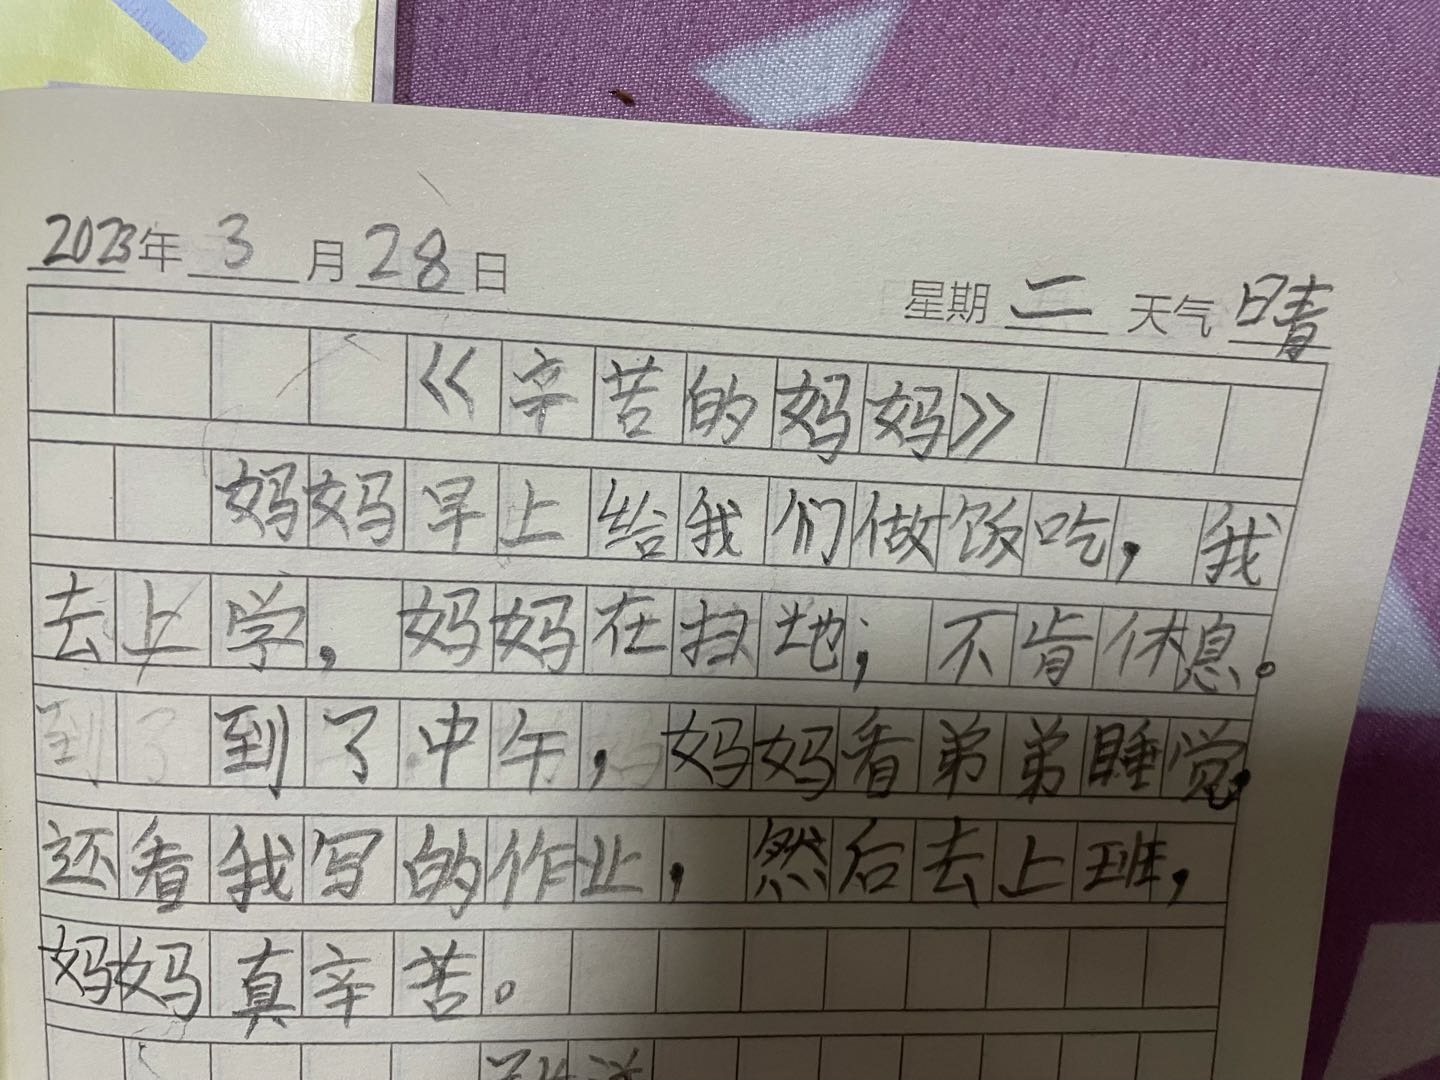 2023年 3 月 28 日 星期 二 天气 晴
《辛苦的妈妈》
妈妈早上给我们做饭吃，我
去上学，妈妈在扫地；不肯休息。
到了中午，妈妈看弟弟睡觉，
还看我写的作业，然后去上班，
妈妈真辛苦。